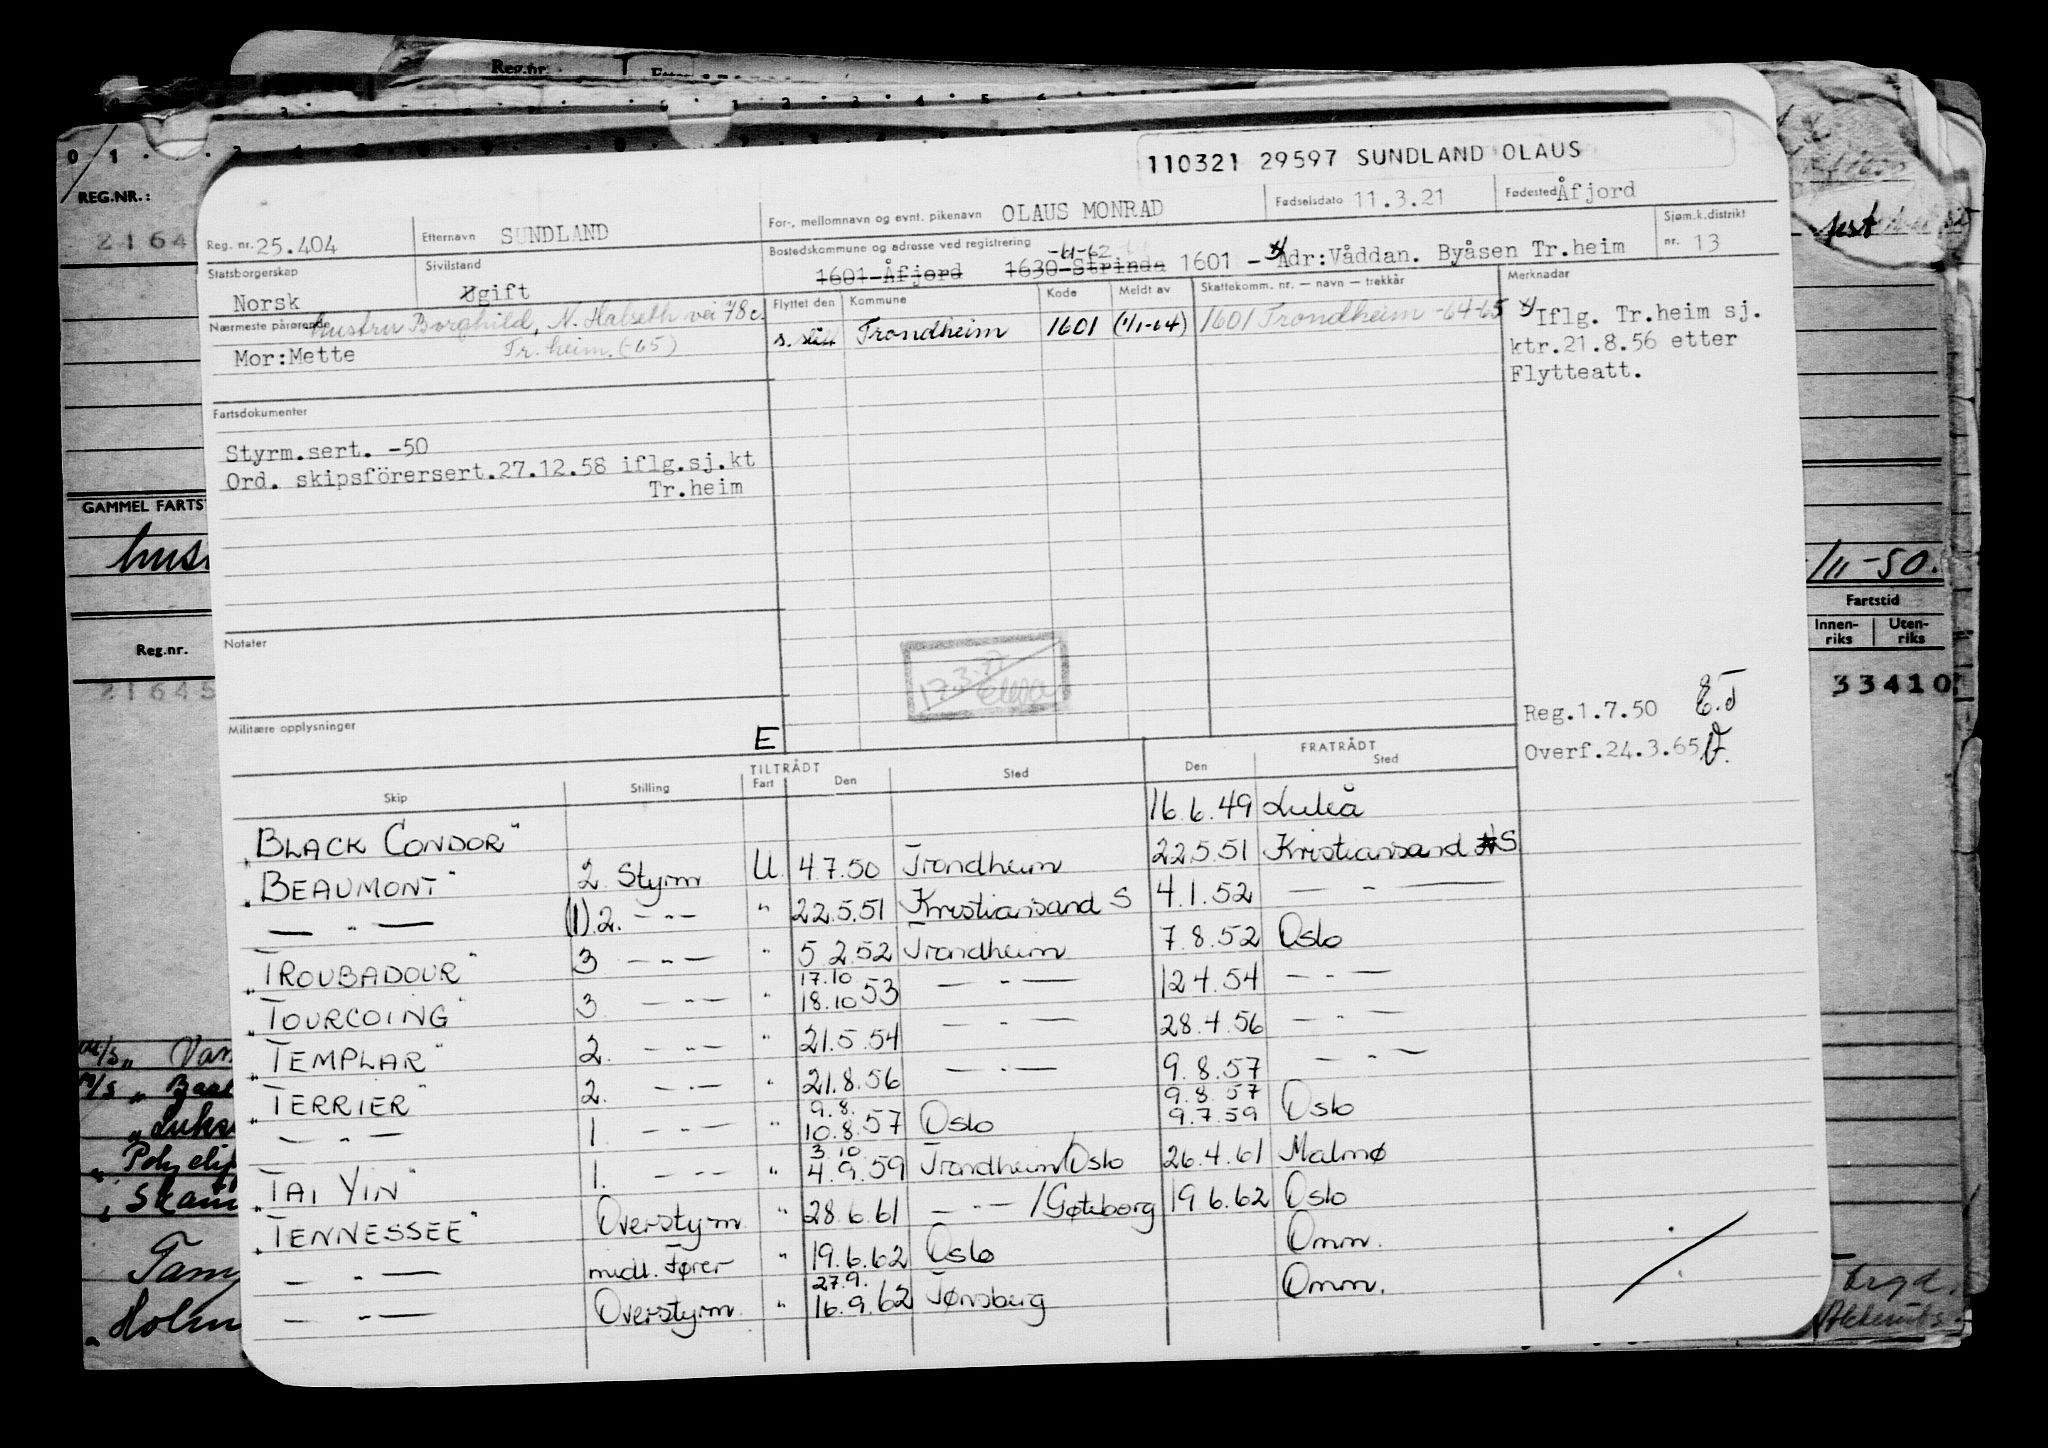 110321 29597 SUNDLAND OLAUS
Reg. nr. 25.404
Etternavn SUNDLAND
For-, mellomnavn og evnt. pikenavn OLAUS MONRAD
Fødselsdato 11.3.21
Fødested Åfjord
Statsborgerskap Norsk
Sivilstand Ugift
Bostedskommune og adresse ved registrering -61-62
1601-Åfjord 1630-Strinda 1601 - Adr:Våddan. Byåsen Tr.heim
Sjøm.k.distrikt nr. 13
Nærmeste pårørende Hustru Borghild, N. Halseth vei 78c.
Mor:Mette Tr.heim. (-65)
Flyttet den Kommune Kode Meldt av Skattekomm. nr. — navn — trekkår
Trondheim 1601 (1/1-64) 1601 Trondheim -64-65
Merknader
Iflg. Tr.heim sj.
ktr.21.8.56 etter
Flytteatt.
Fartsdokumenter
Styrm.sert. -50
Ord. skipsförersert.27.12.58 iflg.sj.kt
Tr.heim
Notater
17.3.77
Militære opplysninger
E
Reg.1.7.50 E.T
Overf.24.3.65
TILTRÅDT FRATRÅDT
Skip Stilling Fart Den Sted Den Sted
"BLACK CONDOR" 16.6.49 Luleå
"BEAUMONT" 2. Styrm U. 4.7.50 Trondheim 22.5.51 Kristiansand S
— " — (1).2. — " — " 22.5.51 Kristiansand S 4.1.52 — " —
"TROUBADOUR" 3 — " — " 5.2.52 Trondheim 7.8.52 Oslo
"TOURCOING" 3. — " — " 17.10 18.10 53 — " — 12.4.54 — " —
"TEMPLAR" 2. — " — " 21.5.54 — " — 28.4.56 — " —
"TERRIER" 2. — " — " 21.8.56 — " — 9.8.57 — " —
— " — 1. — " — " 9.8. 10.8.57 Oslo 9.8.57 9.7.59 Oslo
"TAI YIN" 1. — " — " 3.10 4.9.59 Trondheim/Oslo 26.4.61 Malmø
"TENNESSEE" Overstyrm. " 28.6.61 — " — /Gøteborg 19.6.62 Oslo
— " — midl. Fører " 19.6.62 Oslo Omm.
— " — Overstyrm. " 27.9. 16.9.62 Tønsberg Omm.
REG.NR.:
2164
GAMMEL FARTS
Reg.nr.
21645
/11-50.
Fartstid
Innen-riks Uten-riks
33410
Reg.nr.
M/S
M/S
Holm